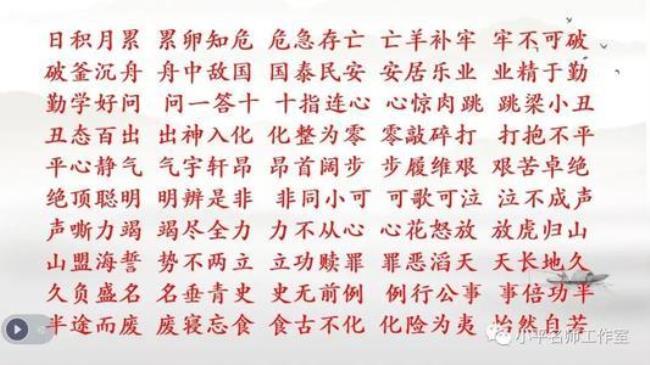 日积月累 累卵知危 危急存亡 亡羊补牢 牢不可破
破釜沉舟 舟中敌国 国泰民安 安居乐业 业精于勤
勤学好问 问一答十 十指连心 心惊肉跳 跳梁小丑
丑态百出 出神入化 化整为零 零敲碎打 打抱不平
平心静气 气宇轩昂 昂首阔步 步履维艰 艰苦卓绝
绝顶聪明 明辨是非 非同小可 可歌可泣 泣不成声
声嘶力竭 竭尽全力 力不从心 心花怒放 放虎归山
山盟海誓 势不两立 立功赎罪 罪恶滔天 天长地久
久负盛名 名垂青史 史无前例 例行公事 事倍功半
半途而废 废寝忘食 食古不化 化险为夷 怡然自若
小平名师工作室